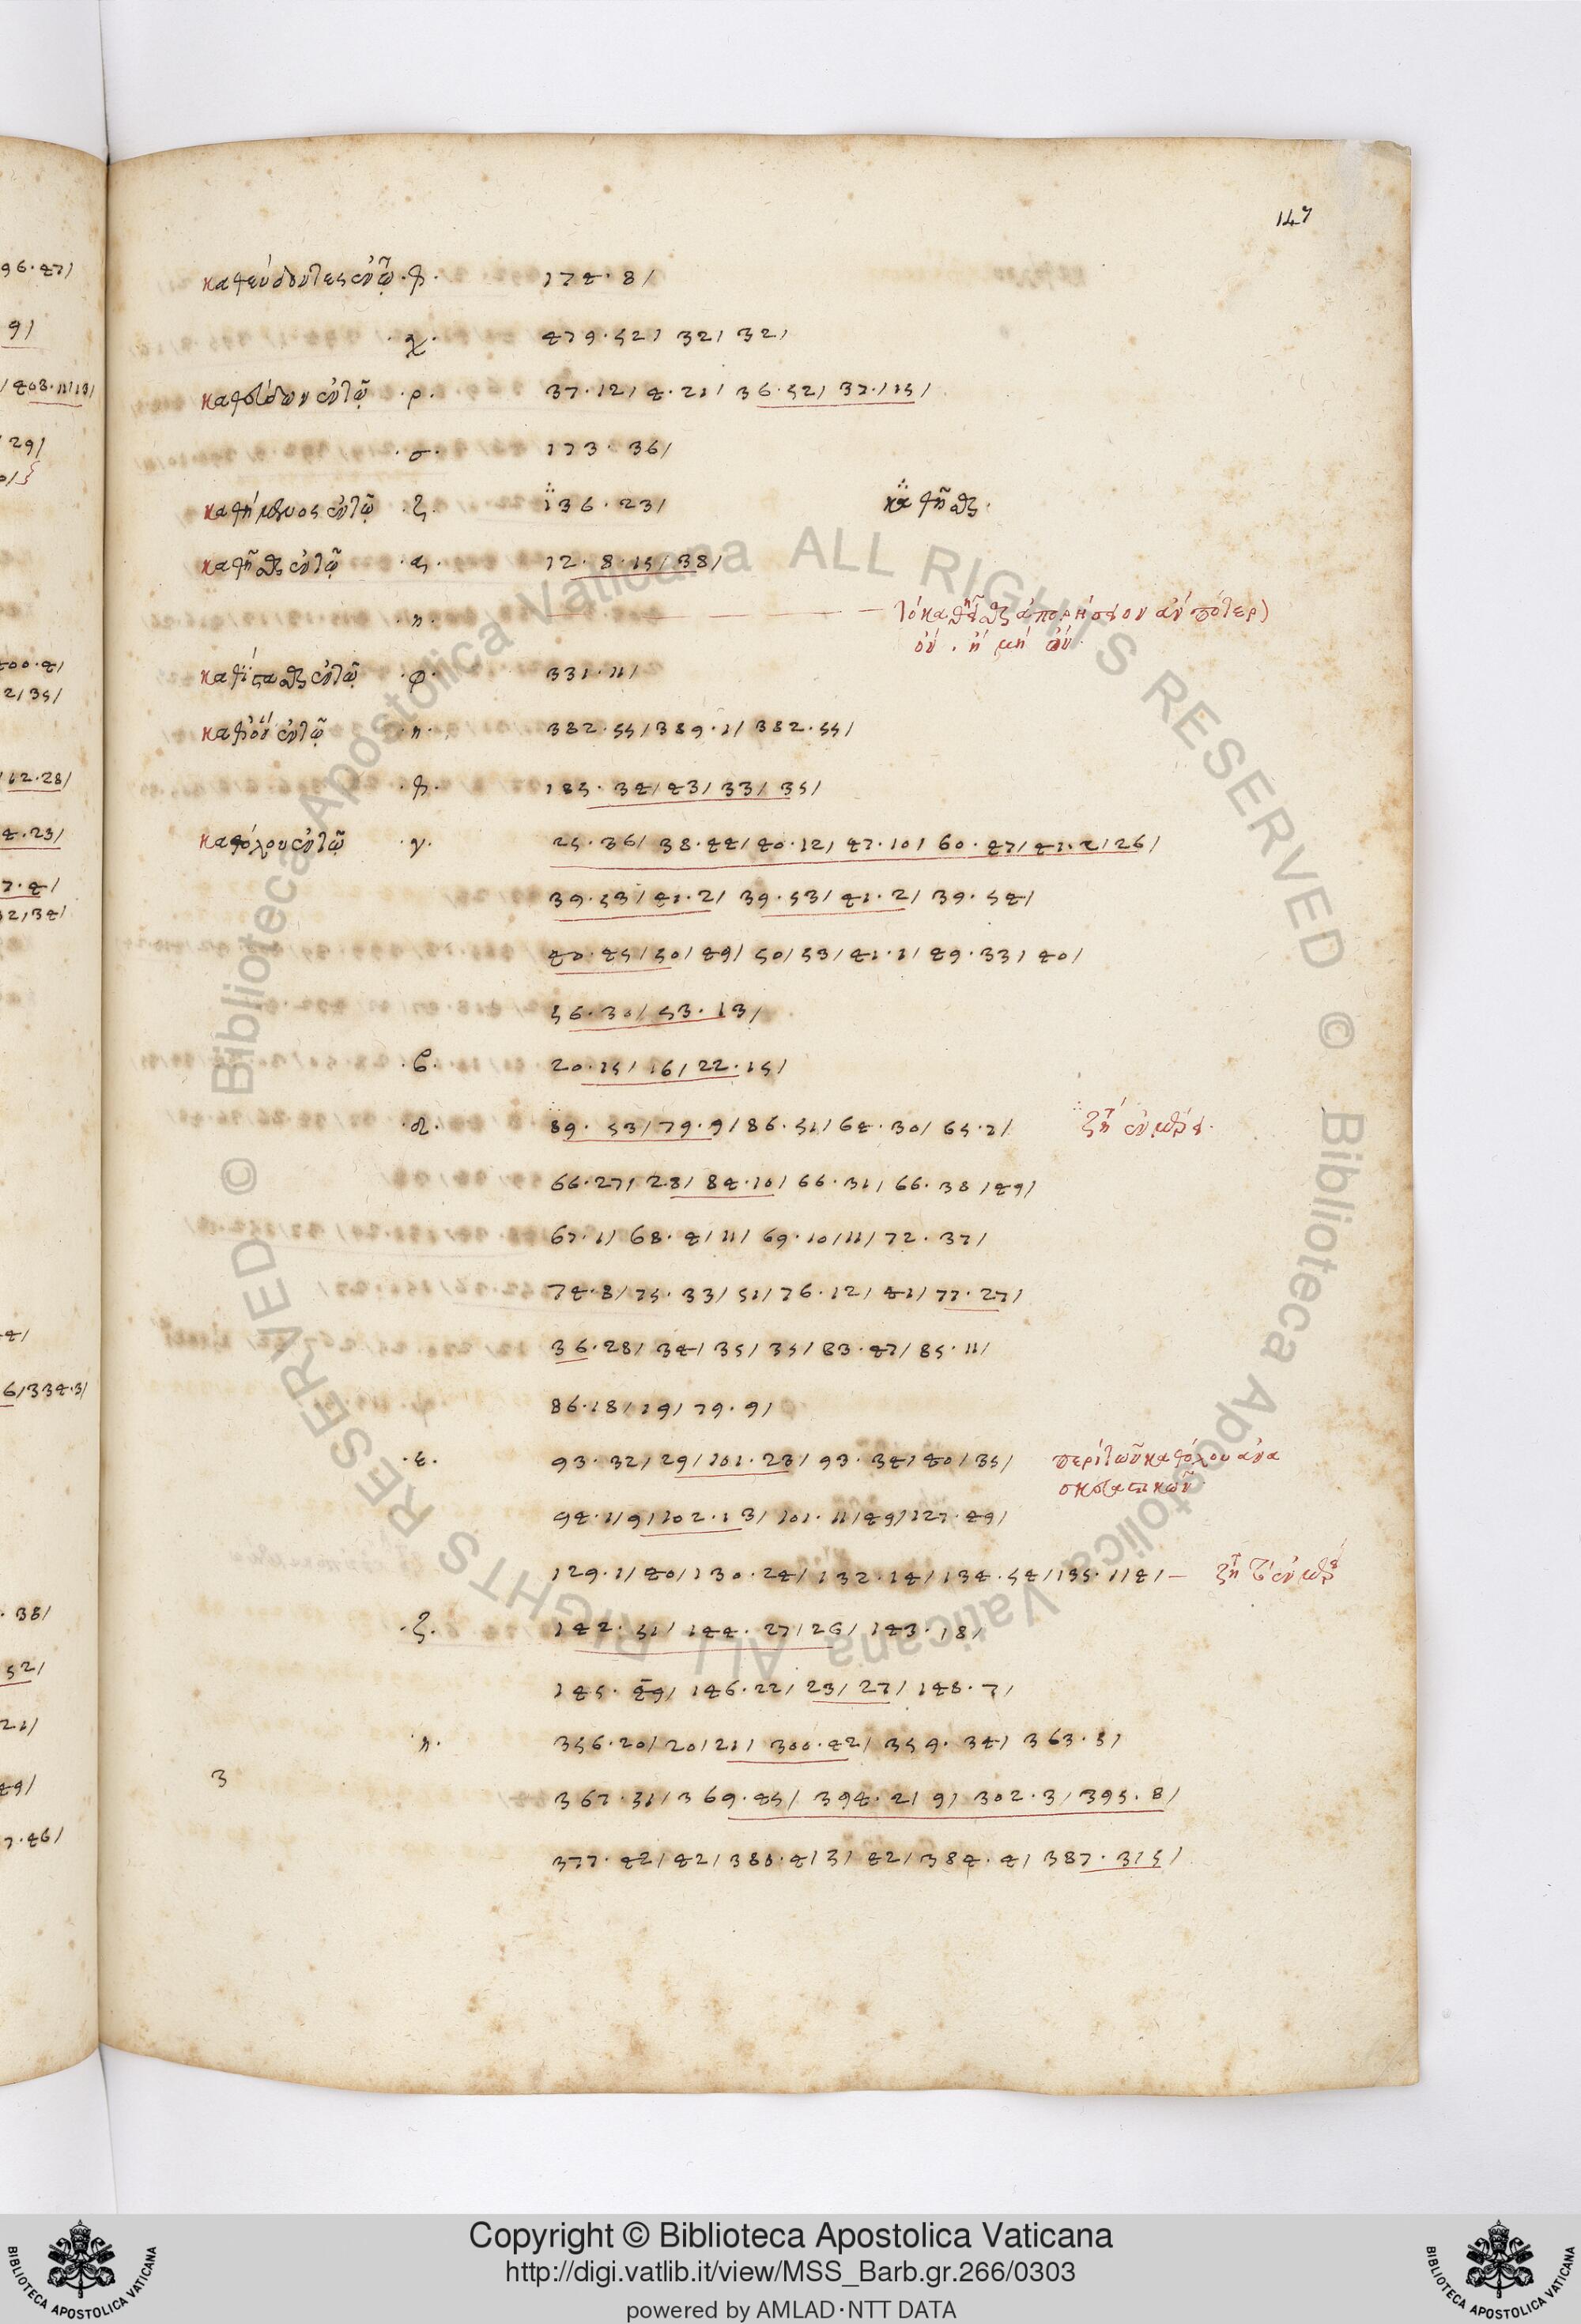 147
καθεύδοντες ἐν τῷ ·θ· 174·8/
·χ· 479·52/ 32/ 32/
καθ' εἶδων ἐν τῷ ·ρ· 37·12/4·21/36·52/37·/15/
·σ· 173·36/
καθήμενος ἐν τῷ ·ζ· 136·23/ καθῆσθαι·
καθῆσθαι ἐν τῷ ·α· 12·8·15/38/
·η· τὸ καθῆσθαι ἀπορήσειεν ἄν πότερ)
ὂν· ἢ μὴ ὂν·
καθίστασθαι ἐν τῷ ·φ· 331·11/
καθὸ ἐν τῷ ·η· 382·55/389·1/382·55/
·θ· 185·34/43/33/35/
καθόλου ἐν τῷ ·γ· 25·36/38·44/40·12/47·10/60·47/41·2/26/
39·53/41·2/39·53/41·2/39·54/
40·45/50/49/50/53/41·1/49·33/40/
56·30/53·13/
·β· 20·15/16/22·15/
·δ· 89·53/79·9/86·51/64·30/65·2/
66·27/28/84·10/66·31/66·38/49/
67·1/68·4/11/69·10/11/72·37/
74·8/75·33/51/76·12/41/77·27/
36·28/34/35/35/83·47/85·11/
86·18/19/79·9/
·ε· 93·32/29/101·23/93·34/40/35/ περὶ τῶν καθόλου ἀνα
σκευαστικῶν
94·1/9/102·13/101·11/49/127·49/
129·1/40/130·24/132·14/134·54/135·1/4/
·ζ· 142·51/144·27/26/143·18/
145·49/146·22/23/27/148·7/
·η· 356·20/20/21/300·42/359·34/363·5/
3 367·31/369·45/394·2/9/302·3/395·8/
377·42/42/380·4/3/42/384·4/387·3/5/
Biblioteca Apostolica Vaticana ALL RIGHTS RESERVED ©
Biblioteca Apostolica Vaticana ALL RIGHTS RESERVED ©
Copyright © Biblioteca Apostolica Vaticana
http://digi.vatlib.it/view/MSS_Barb.gr.266/0303
powered by AMLAD·NTT DATA
BIBLIOTECA APOSTOLICA VATICANA
BIBLIOTECA APOSTOLICA VATICANA